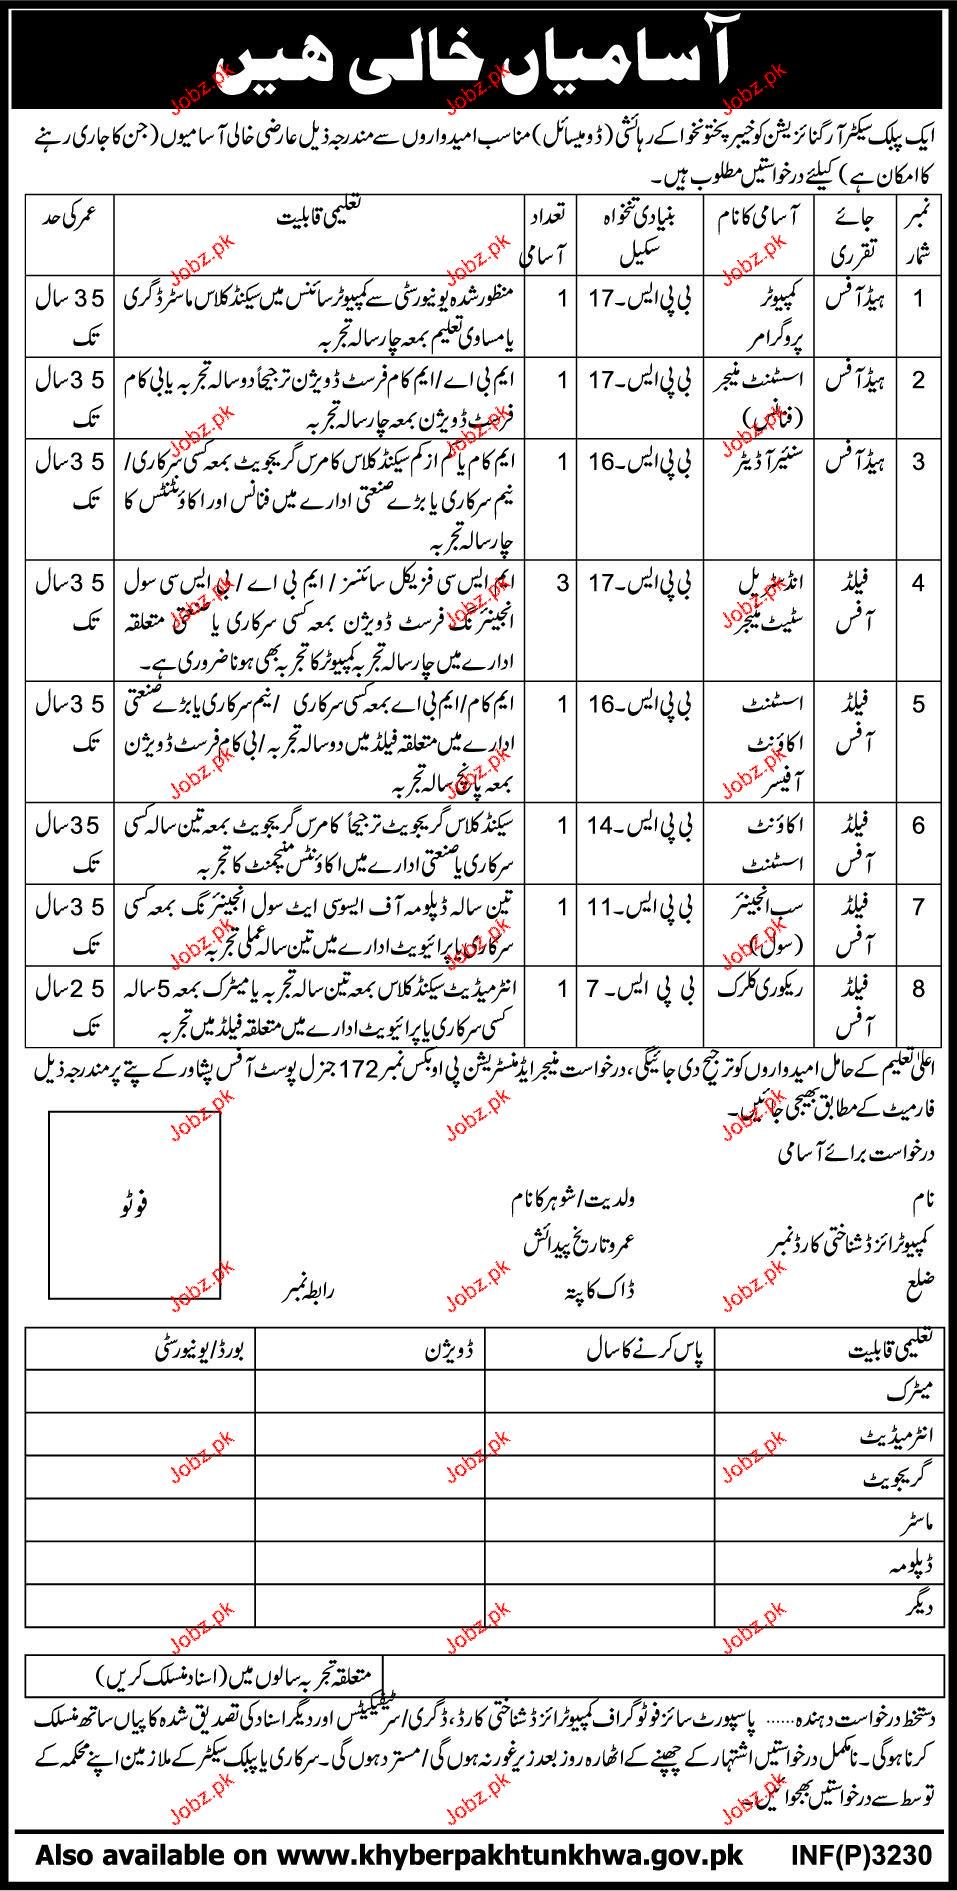 آسامیاں خالی ھیں
ایک پبلک سیکٹر آرگنائزیشن کو خیبر پختونخوا کے رہائشی (ڈومیسائل) مناسب امیدواروں سے مندرجہ ذیل عارضی خالی آسامیوں (جن کا جاری رہنے
کا امکان ہے) کیلئے درخواستیں مطلوب ہیں۔
نمبر شمار	جائے تقرری	آسامی کا نام	بنیادی تنخواہ سکیل	تعداد آسامی	تعلیمی قابلیت	عمر کی حد
1	ہیڈ آفس	کمپیوٹر پروگرامر	بی پی ایس۔17	1	منظور شدہ یونیورسٹی سے کمپیوٹر سائنس میں سیکنڈ کلاس ماسٹر ڈگری
یا مساوی تعلیم بمعہ چار سالہ تجربہ	35 سال تک
2	ہیڈ آفس	اسٹنٹ منیجر (فنانس)	بی پی ایس۔17	1	ایم بی اے/ایم کام فرسٹ ڈویژن ترجیحاً دو سالہ تجربہ یا بی کام
فرسٹ ڈویژن بمعہ چار سالہ تجربہ	35 سال تک
3	ہیڈ آفس	سنئیر آڈیٹر	بی پی ایس۔16	1	ایم کام یا کم از کم سیکنڈ کلاس کامرس گریجویٹ بمعہ کسی سرکاری/
نیم سرکاری یا بڑے صنعتی ادارے میں فنانس اور اکاؤنٹنٹس کا
چار سالہ تجربہ	35 سال تک
4	فیلڈ آفس	انڈسٹریل سٹیٹ منیجر	بی پی ایس۔17	3	ایم ایس سی فزیکل سائنسز/ ایم بی اے/ بی ایس سی سول
انجینئرنگ فرسٹ ڈویژن بمعہ کسی سرکاری یا صنعتی متعلقہ
ادارے میں چار سالہ تجربہ کمپیوٹر کا تجربہ بھی ہونا ضروری ہے۔	35 سال تک
5	فیلڈ آفس	اسٹنٹ اکاؤنٹ آفیسر	بی پی ایس۔16	1	ایم کام/ایم بی اے بمعہ کسی سرکاری /نیم سرکاری یا بڑے صنعتی
ادارے میں متعلقہ فیلڈ میں دو سالہ تجربہ/بی کام فرسٹ ڈویژن
بمعہ پانچ سالہ تجربہ	35 سال تک
6	فیلڈ آفس	اکاؤنٹ اسٹنٹ	بی پی ایس۔14	1	سیکنڈ کلاس گریجویٹ ترجیحاً کامرس گریجویٹ بمعہ تین سالہ کسی
سرکاری یا صنعتی ادارے میں اکاؤنٹس منیجمنٹ کا تجربہ	35 سال تک
7	فیلڈ آفس	سب انجینئر (سول)	بی پی ایس۔11	1	تین سالہ ڈپلومہ آف ایسوسی ایٹ سول انجینئرنگ بمعہ کسی
سرکاری یا پرائیویٹ ادارے میں تین سالہ عملی تجربہ	35 سال تک
8	فیلڈ آفس	ریکوری کلرک	بی پی ایس۔7	1	انٹرمیڈیٹ سیکنڈ کلاس بمعہ تین سالہ تجربہ یا میٹرک بمعہ 5 سالہ
کسی سرکاری یا پرائیویٹ ادارے میں متعلقہ فیلڈ میں تجربہ	25 سال تک
اعلیٰ تعلیم کے حامل امیدواروں کو ترجیح دی جائیگی، درخواست منیجر ایڈمنسٹریشن پی او بکس نمبر 172 جنرل پوسٹ آفس پشاور کے پتے پر مندرجہ ذیل
فارمیٹ کے مطابق بھیجی جائیں۔
درخواست برائے آسامی
فوٹو
نام	ولدیت/شوہر کا نام
کمپیوٹرائزڈ شناختی کارڈ نمبر	عمر و تاریخ پیدائش
ضلع	ڈاک کا پتہ	رابطہ نمبر
تعلیمی قابلیت	پاس کرنے کا سال	ڈویژن	بورڈ/یونیورسٹی
میٹرک
انٹرمیڈیٹ
گریجویٹ
ماسٹر
ڈپلومہ
دیگر
متعلقہ تجربہ سالوں میں (اسناد منسلک کریں)
دستخط درخواست دہندہ...... پاسپورٹ سائز فوٹو گراف کمپیوٹرائزڈ شناختی کارڈ، ڈگری/سرٹیفکیٹس اور دیگر اسناد کی تصدیق شدہ کاپیاں ساتھ منسلک
کرنا ہوگی۔ نامکمل درخواستیں اشتہار کے چھپنے کے اٹھارہ روز بعد زیر غور نہ ہوں گی/مسترد ہوں گی۔ سرکاری یا پبلک سیکٹر کے ملازمین اپنے محکمہ کے
توسط سے درخواستیں بھجوائیں۔
Also available on www.khyberpakhtunkhwa.gov.pk INF(P)3230
Jobz.pk